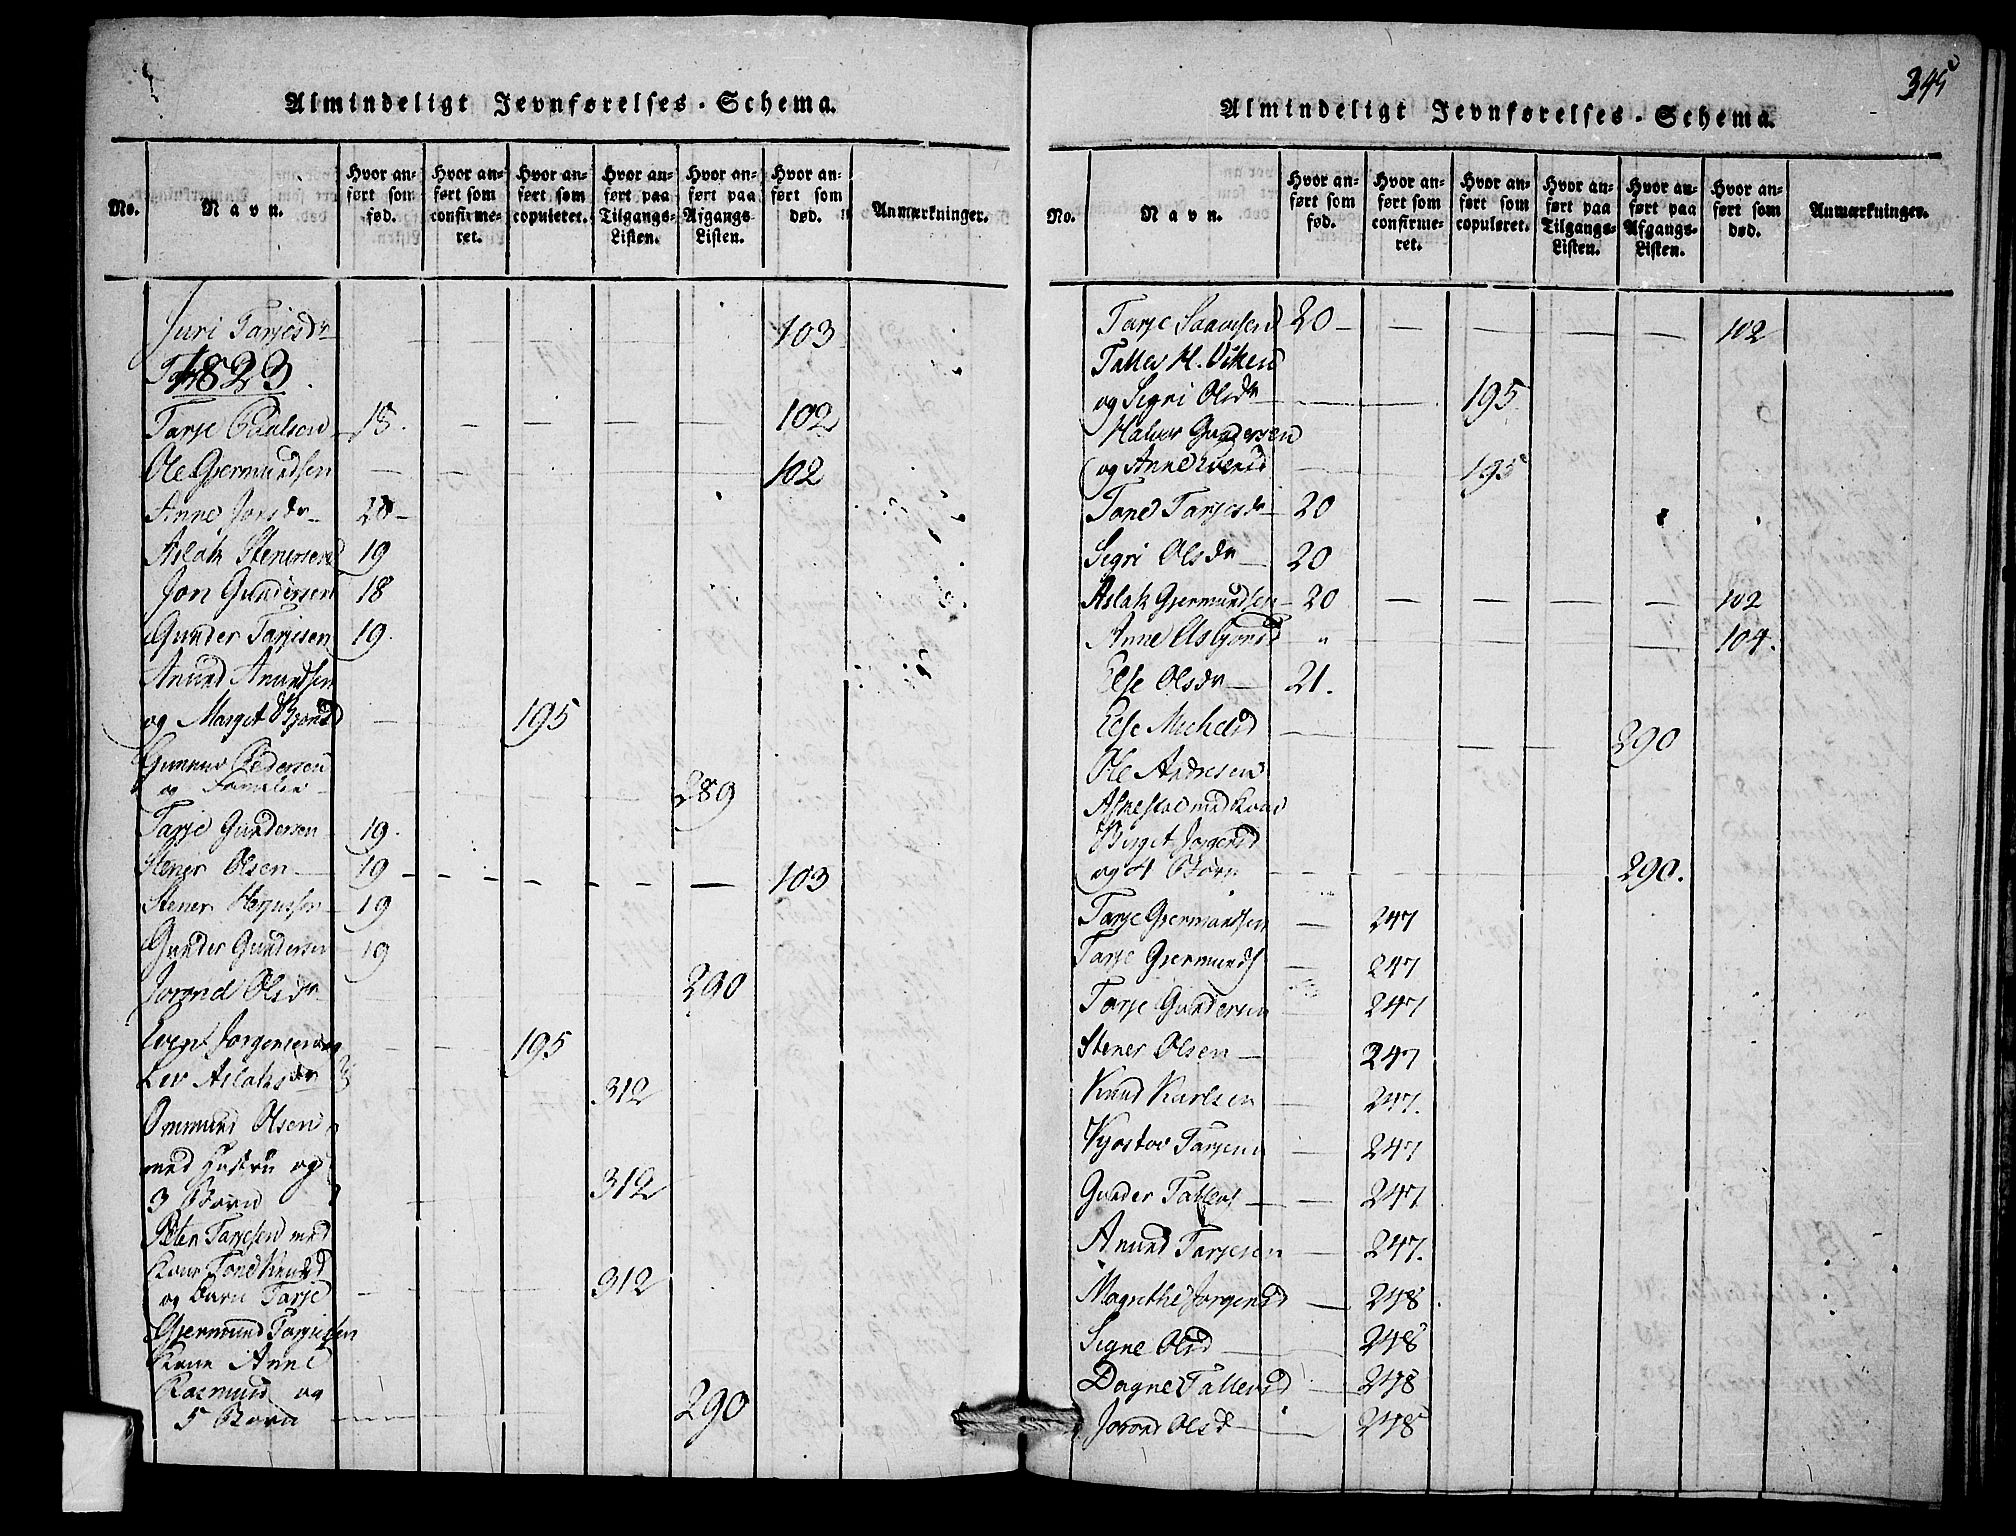 Almindeligt Jevnførelses-Schema.
No. Navn. Hvor anført som fød. Hvor anført som confirmeret. Hvor anført som copuleret. Hvor anført paa Tilgangs-Listen. Hvor anført paa Afgangs-Listen. Hvor anført som død. Anmærkninger.
Juri Tarjesdr 103
1823
Tarje Paalsen 18. 102
Ole Gjermundsen 102
Anne Jonsdr 20
Aslak Stenersen 19
Jon Gundersen 18
Gunder Tarjesen 19.
Anund Anundsen
og Marget Bjonsd 195
Gunnur Pedersen
og Familie 289
Tarje Gundersen 19.
Stener Olsen 19 103
Stener 19
Gunder Gundersen 19
Jorond Olsdr 290
Even Jorgensen og 195
Liv Aslaksdr 312
Ommund Olsen
med Hustru og
3 Børn 312
Peter Tarjesen med
Kone Tone Knudsd
og Barn Tarje 312
Gjermund Tarjesen
Kone Anne
Rasmusd og
5 Børn 290
345
Almindeligt Jevnførelses-Schema.
No. Navn. Hvor anført som fød. Hvor anført som confirmeret. Hvor anført som copuleret. Hvor anført paa Tilgangs-Listen. Hvor anført paa Afgangs-Listen. Hvor anført som død. Anmærkninger.
Tarje Saavesen 20 102
Tallev H. Viken
og Segri Olsdr 195
Halvor Gundersen
og Anne Evensd 195
Tone Tarjesdr 20
Segri Olsdr 20
Aslak Gjermundsen 20 102
Anne Asbjonsd " 104.
Else Olsdr 21.
Else Michelsd 290
Ole Andresen
med Kone
Birget Jorgensd
og 4 Børn 290.
Tarje Gjermundsen 247
Tarje Gjermunds 247
Tarje Gundersen 247
Stener Olsen 247
Knud Karlsen 247.
Kjøstov Tarjesen 247
Gunder Tallevs 247
Anund Tarjesen 247.
Magrethe Jorgensd 248
Signe Olsd 248
Dagne Tallevsd 248
Jorond Olsd 248